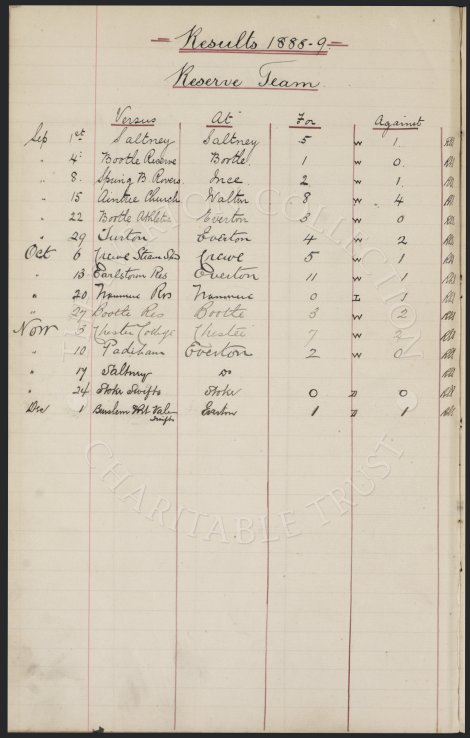 Results 1888-9
Reserve Team
Versus At For Against
Sep 1st Saltney Saltney 5 W 1
" 4 Bootle Reserve Bootle 1 W 0
" 8 Spring B. Rovers Ince 2 W 1
" 15 Aintree Church Walton 8 W 4
" 22 Bootle Athletic Everton 3 W 0
" 29 Turton Everton 4 W 2
Oct 6 Crewe Steam Crewe 5 W 1
" 13 Earlstown Res Everton 11 W 1
" 20 Res 0 L 1
" 27 Bootle Res Bootle 3 W 2
Nov 3 Chester Chester 7 W 2
" 10 Padiham Everton 2 W 0
" 17 Saltney
" 24 Stoke Swifts Stoke 0 D 0
Dec 1 Burslem Port Vale Everton 1 D 1
Swifts
COLLECTION
CHARITABLE TRUST